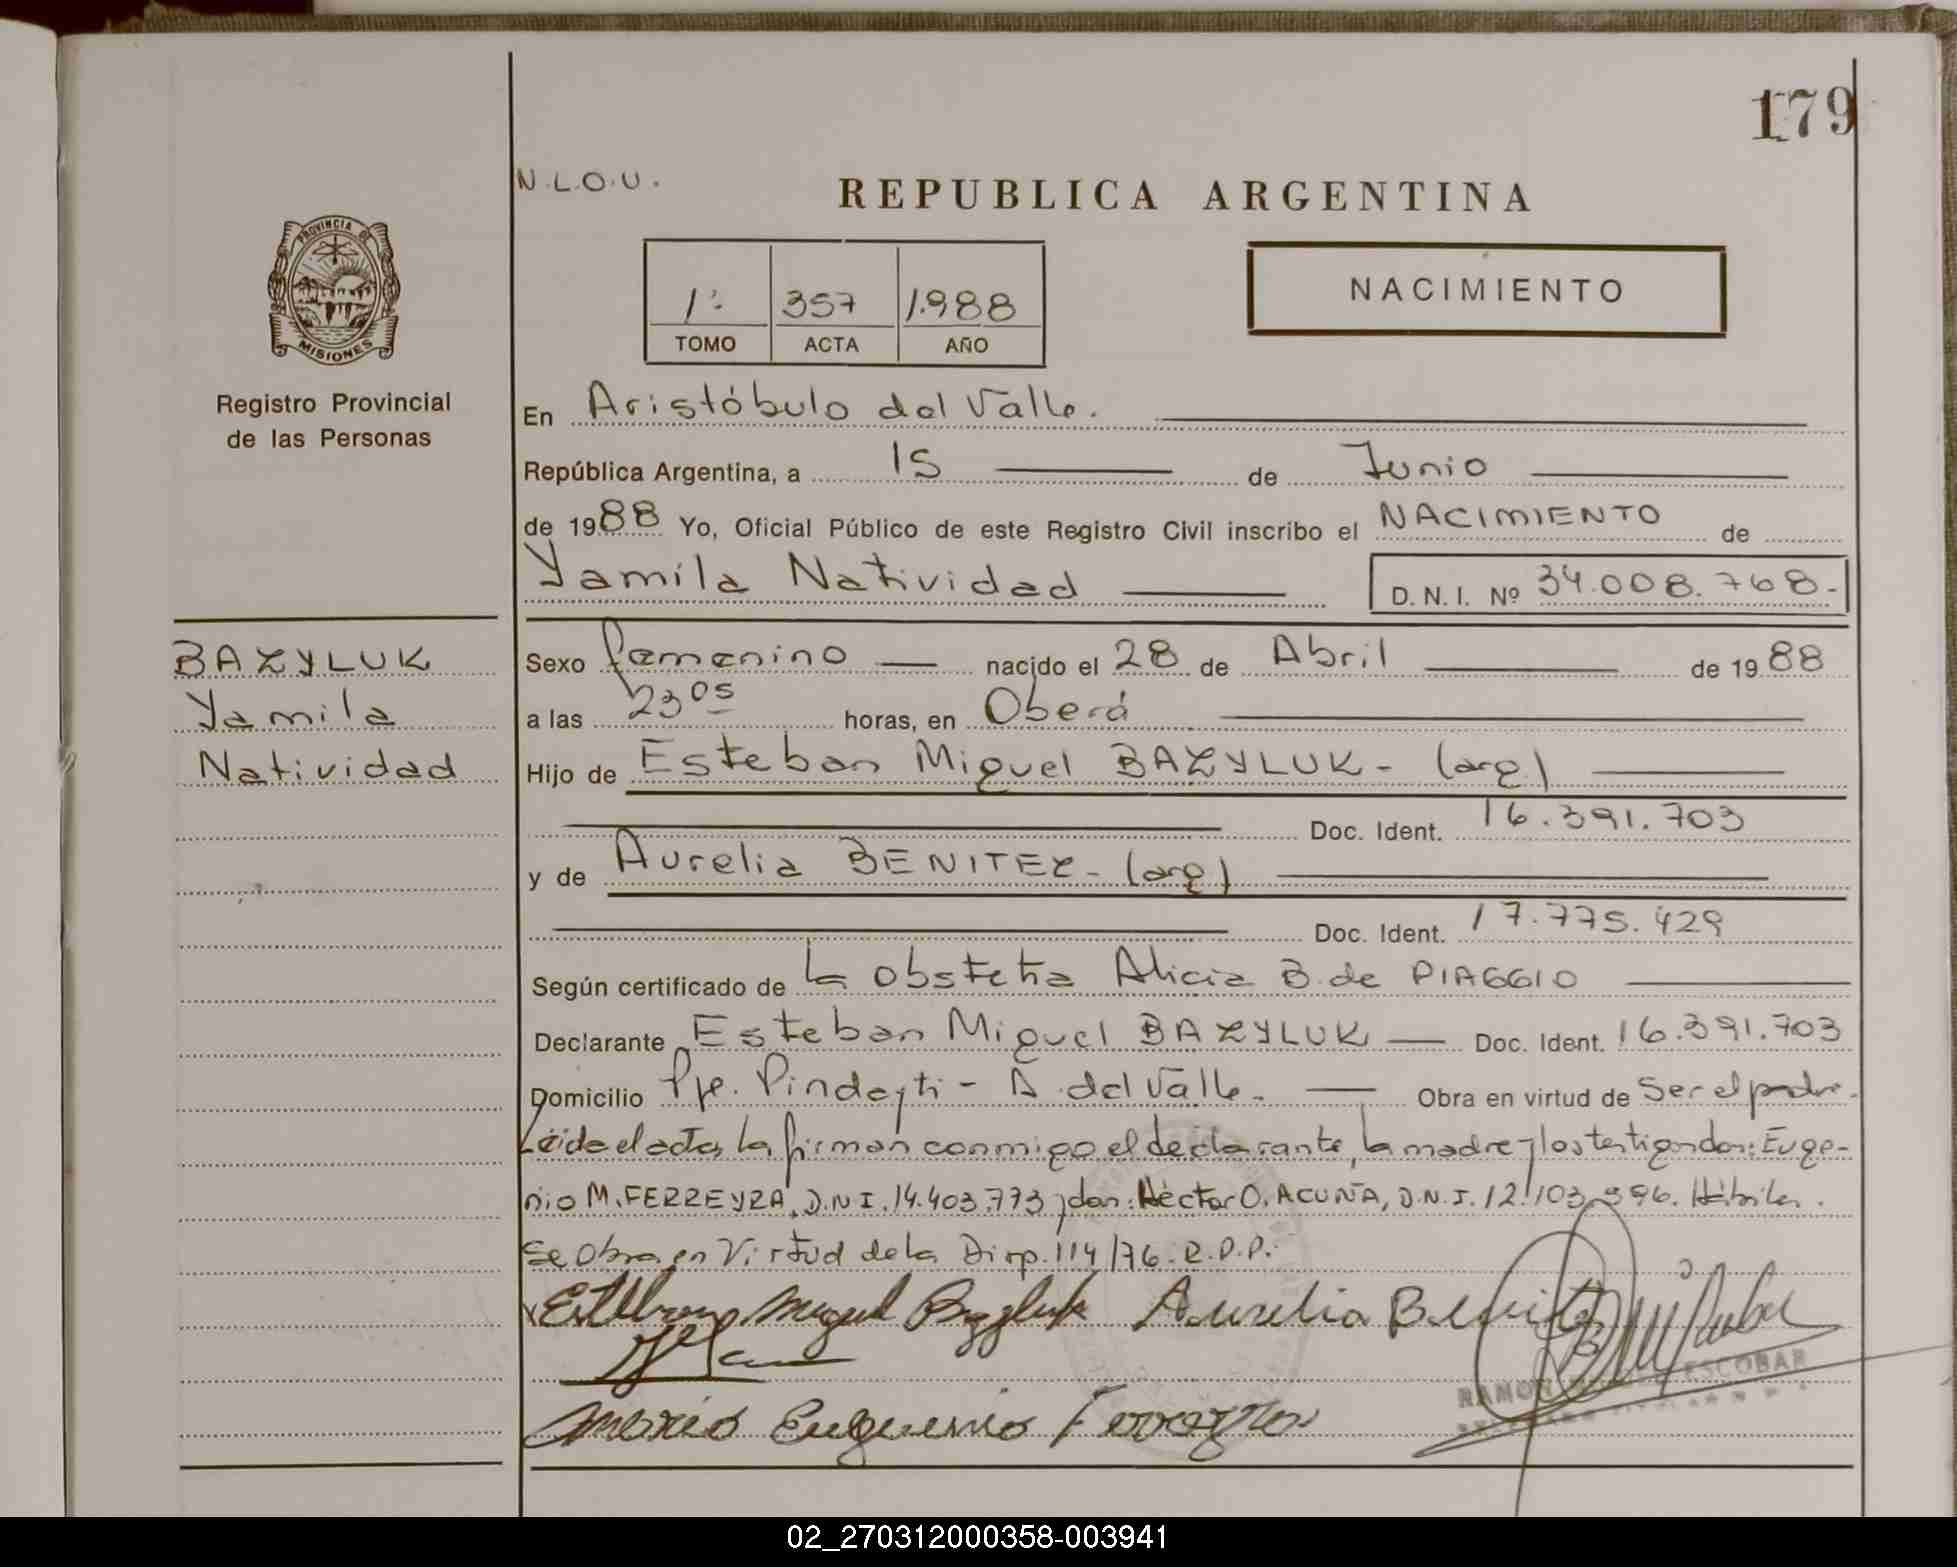 179
N.L.O.U.
REPUBLICA ARGENTINA
PROVINCIA DE
MISIONES
1º 357 1.988
TOMO ACTA AÑO
NACIMIENTO
Registro Provincial
de las Personas
En Aristóbulo del Valle.
República Argentina, a 15 de Junio
de 1988 Yo, Oficial Público de este Registro Civil inscribo el NACIMIENTO de
Yamila Natividad D.N.I. Nº 34.008.768.-
BAZYLUK
Yamila
Natividad
Sexo femenino nacido el 28 de Abril de 1988
a las 23 05 horas, en Oberá
Hijo de Esteban Miguel BAZYLUK - (arg)
Doc. Ident. 16.391.703
y de Aurelia BENITEZ - (arg)
Doc. Ident. 17.775.429
Según certificado de la obstetra Alicia B. de PIAGGIO
Declarante Esteban Miguel BAZYLUK Doc. Ident. 16.391.703
Domicilio Pje. Pindayti - A. del Valle. Obra en virtud de Ser el padre.
Leída el acta, la firman conmigo el declarante, la madre y los testigos don: Euge-
nio M. FERREYRA, D.N.I. 14.403.773 y don: Héctor O. ACUÑA, D.N.I. 12.103.996. Hábiles.
Se Obra en Virtud de la Disp. 114/76. R.P.P.
Esteban Miguel Bazyluk Aurelia Benitez
RAMON ESCOBAR
Mario Euguenio Ferreyra
02_270312000358-003941